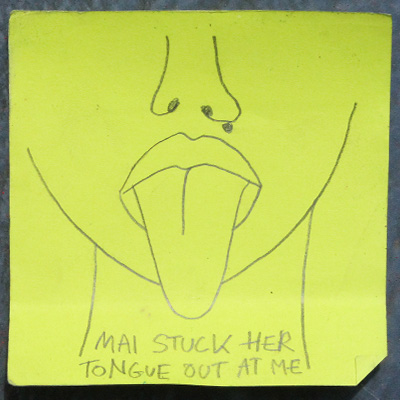 MAI STUCK HER
TONGUE OUT AT ME